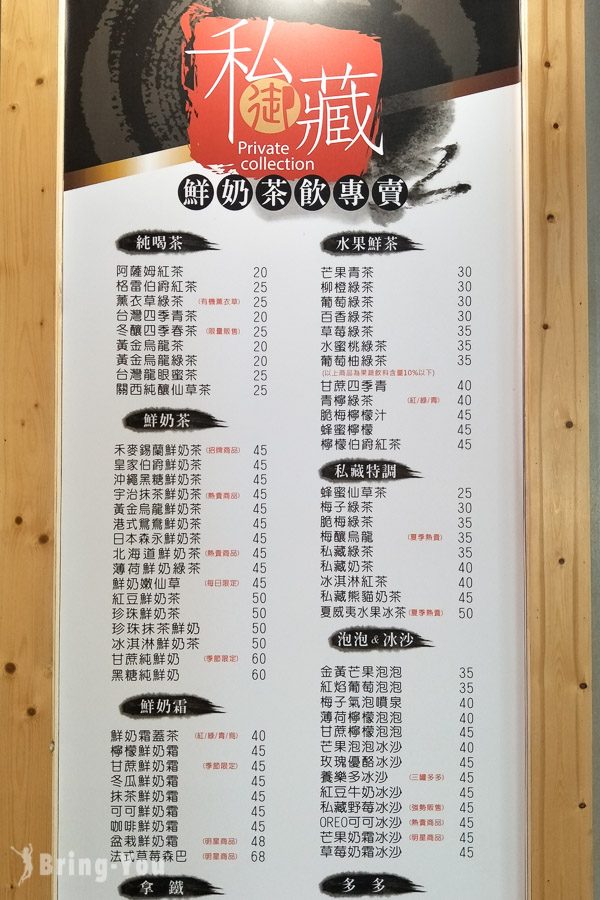 私御藏
Private
collection
鮮奶茶飲專賣
純喝茶
阿薩姆紅茶 20
格雷伯爵紅茶 25
薰衣草綠茶 (有機薰衣草) 25
台灣四季青茶 20
冬釀四季春茶 (限量販售) 25
黃金烏龍茶 20
黃金烏龍綠茶 20
台灣龍眼蜜茶 25
關西純釀仙草茶 25
鮮奶茶
禾麥錫蘭鮮奶茶 (招牌商品) 45
皇家伯爵鮮奶茶 45
沖繩黑糖鮮奶茶 45
宇治抹茶鮮奶茶 (熱賣商品) 45
黃金烏龍鮮奶茶 45
港式鴛鴦鮮奶茶 45
日本森永鮮奶茶 45
北海道鮮奶茶 (熱賣商品) 45
薄荷鮮奶綠茶 45
鮮奶嫩仙草 (每日限定) 45
紅豆鮮奶茶 50
珍珠鮮奶茶 50
珍珠抹茶鮮奶 50
冰淇淋鮮奶茶 50
甘蔗純鮮奶 (季節限定) 60
黑糖純鮮奶 60
鮮奶霜
鮮奶霜蓋茶 (紅/綠/青/烏) 40
檸檬鮮奶霜 45
甘蔗鮮奶霜 (季節限定) 45
冬瓜鮮奶霜 45
抹茶鮮奶霜 45
可可鮮奶霜 45
咖啡鮮奶霜 45
盆栽鮮奶霜 (明星商品) 48
法式草莓森巴 (明星商品) 68
拿鐵
水果鮮茶
芒果青茶 30
柳橙綠茶 30
葡萄綠茶 30
百香綠茶 30
草莓綠茶 35
水蜜桃綠茶 35
葡萄柚綠茶 35
(以上商品為果蔬飲料含量10%以下)
甘蔗四季青 40
青檸綠茶 (紅/綠/青) 40
脆梅檸檬汁 45
蜂蜜檸檬 45
檸檬伯爵紅茶 45
私藏特調
蜂蜜仙草茶 25
梅子綠茶 30
脆梅綠茶 35
梅釀烏龍 (夏季熱賣) 35
私藏綠茶 35
私藏奶茶 40
冰淇淋紅茶 40
私藏熊貓奶茶 45
夏威夷水果冰茶 (夏季熱賣) 50
泡泡&冰沙
金黃芒果泡泡 35
紅焰葡萄泡泡 35
梅子氣泡噴泉 40
薄荷檸檬泡泡 40
甘蔗檸檬泡泡 45
芒果泡泡冰沙 40
玫瑰優酪冰沙 45
養樂多冰沙 (三罐多多) 45
紅豆牛奶冰沙 45
私藏野莓冰沙 (強勢販售) 45
OREO可可冰沙 (熱賣商品) 45
芒果奶霜冰沙 (明星商品) 45
草莓奶霜冰沙 45
多多
Bring-You